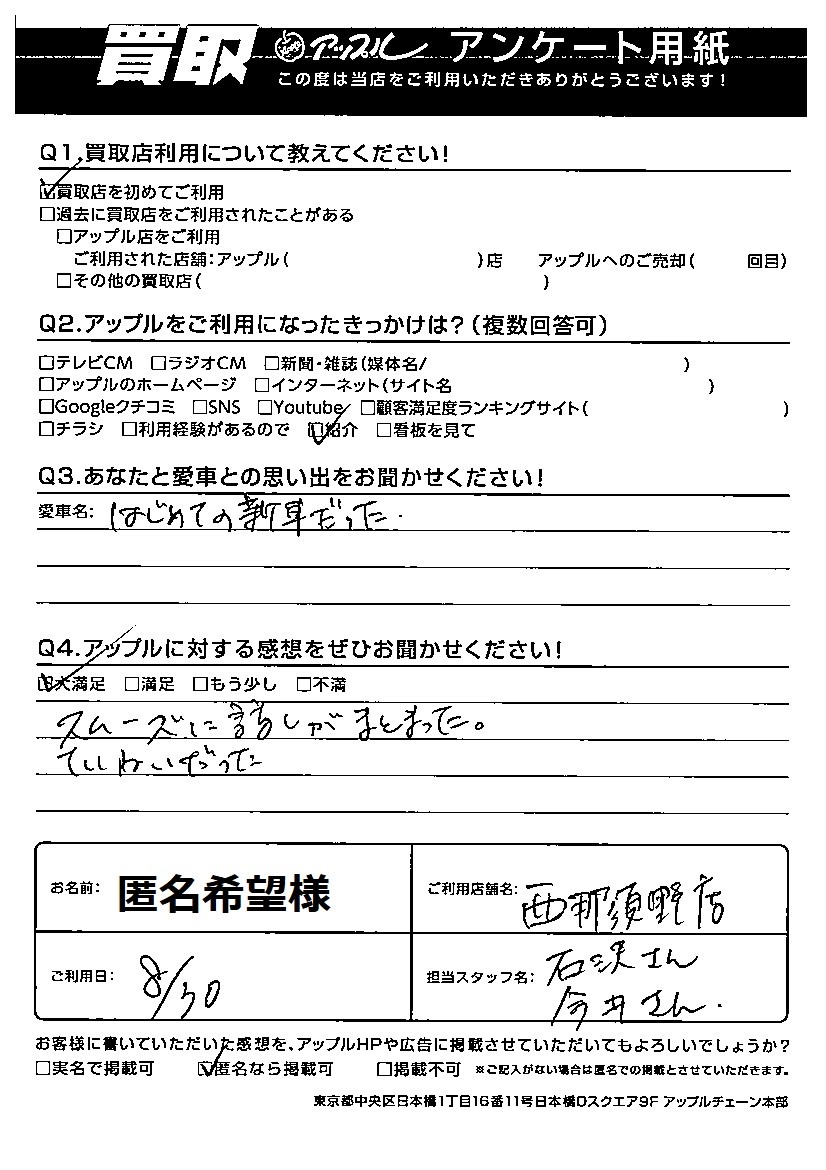 買取 アップル アンケート用紙
この度は当店をご利用いただきありがとうございます!
Q1.買取店利用について教えてください!
☑買取店を初めてご利用
□過去に買取店をご利用されたことがある
□アップル店をご利用
ご利用された店舗:アップル( )店 アップルへのご売却( 回目)
□その他の買取店( )
Q2.アップルをご利用になったきっかけは?(複数回答可)
□テレビCM □ラジオCM □新聞・雑誌(媒体名/ )
□アップルのホームページ □インターネット(サイト名 )
□Googleクチコミ □SNS □Youtube □顧客満足度ランキングサイト( )
□チラシ □利用経験があるので ☑紹介 □看板を見て
Q3.あなたと愛車との思い出をお聞かせください!
愛車名: はじめての新車だった.
Q4.アップルに対する感想をぜひお聞かせください!
☑大満足 □満足 □もう少し □不満
スムーズに話しがまとまった。
ていねいだった
お名前: 匿名希望様 ご利用店舗名: 西那須野店
ご利用日: 8/30 担当スタッフ名: 石沢さん
今井さん.
お客様に書いていただいた感想を、アップルHPや広告に掲載させていただいてもよろしいでしょうか?
□実名で掲載可 ☑匿名なら掲載可 □掲載不可 ※ご記入がない場合は匿名での掲載とさせていただきます。
東京都中央区日本橋1丁目16番11号日本橋Dスクエア9F アップルチェーン本部